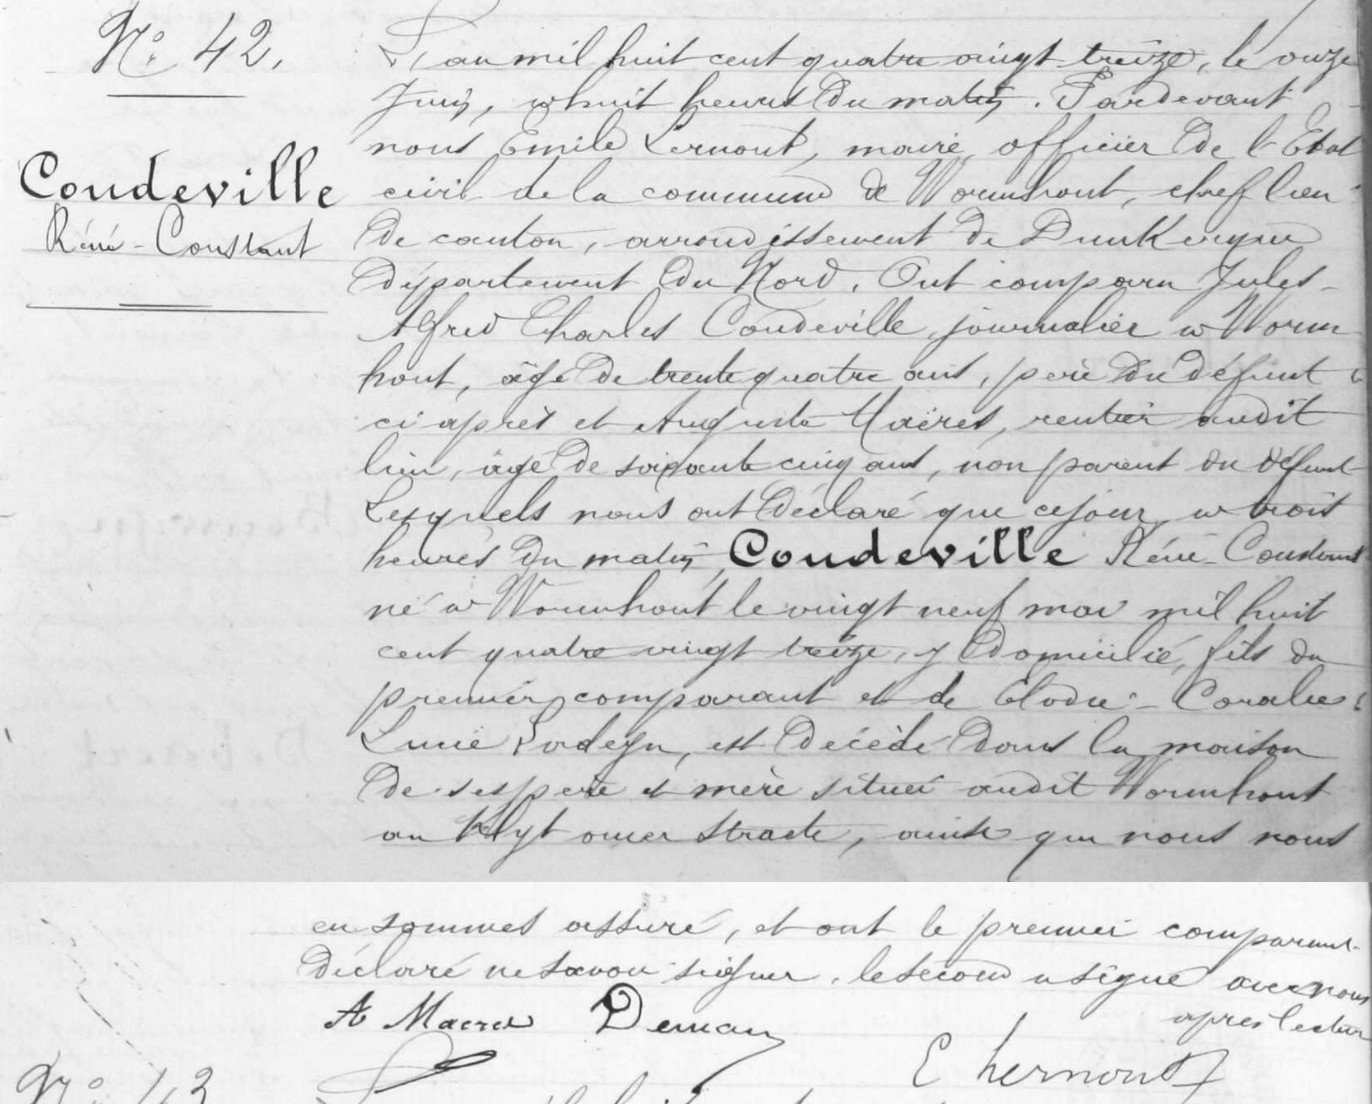 N° 42.
Coudeville
Réné-Constant
L'an mil huit cent quatre vingt treize, le onze
Juin, à huit heures du matin. Pardevant
nous Emile Lernout, maire, officier de l'Etat
civil de la commune de Wormhout, chef lieu
de canton, arrondissement de Dunkerque
département du Nord. Ont comparu Jules-
Alfred Charles Coudeville, journalier à Worm
hout, âgé de trente quatre ans, père du défunt
ci après et Auguste Maeres, rentier audit
lieu, âgé de soixante cinq ans, non parent du défunt
Lesquels nous ont déclaré que cejour, à trois
heures du matin, Coudeville Réné-Constant
né à Wormhout le vingt neuf mai mil huit
cent quatre vingt treize, y domicilié, fils du
premier comparant et de Elodie-Coralie-
Lucie, est décédé dans la maison
de ses père et mère située audit Wormhout
au Klyt omer straete, ainsi que nous nous
en sommes assuré, et ont le premier comparant
déclaré ne savoir signer, le second a signé avec nous
après lecture
A Maeres Deman
E Lernout
N° 43